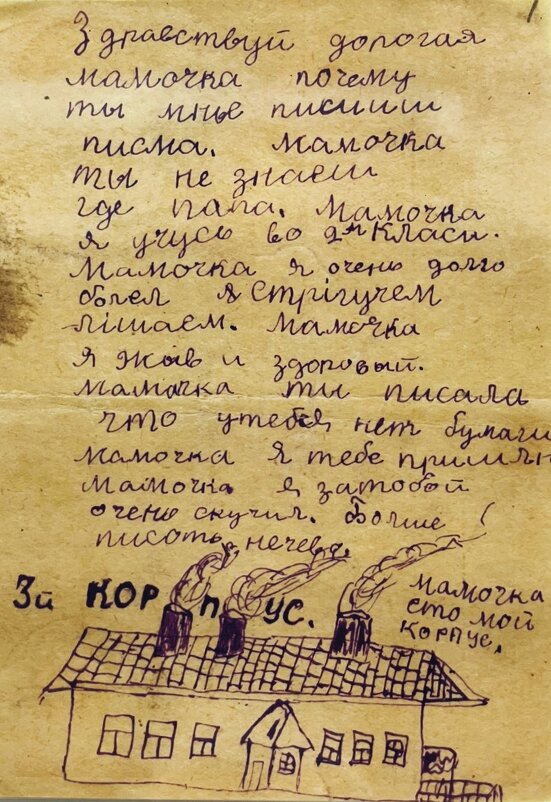 Здравствуй дорогая
мамочка почему
ты мнье писиши
писма. мамочка
ты не знаеш
где папа. Мамочка
я учусь во 2м класи.
Мамочка я очень долго
болел я стрігучем
лішаєм. Мамочка
я жив и здоровый.
мамочка ты писала
что утебя нет бумаги
мамочка я тебе
мамочка я затобой
очень скучил. Болше
писать нечево.
3й КОРПУС.
мамочка
ето мой
корпус.